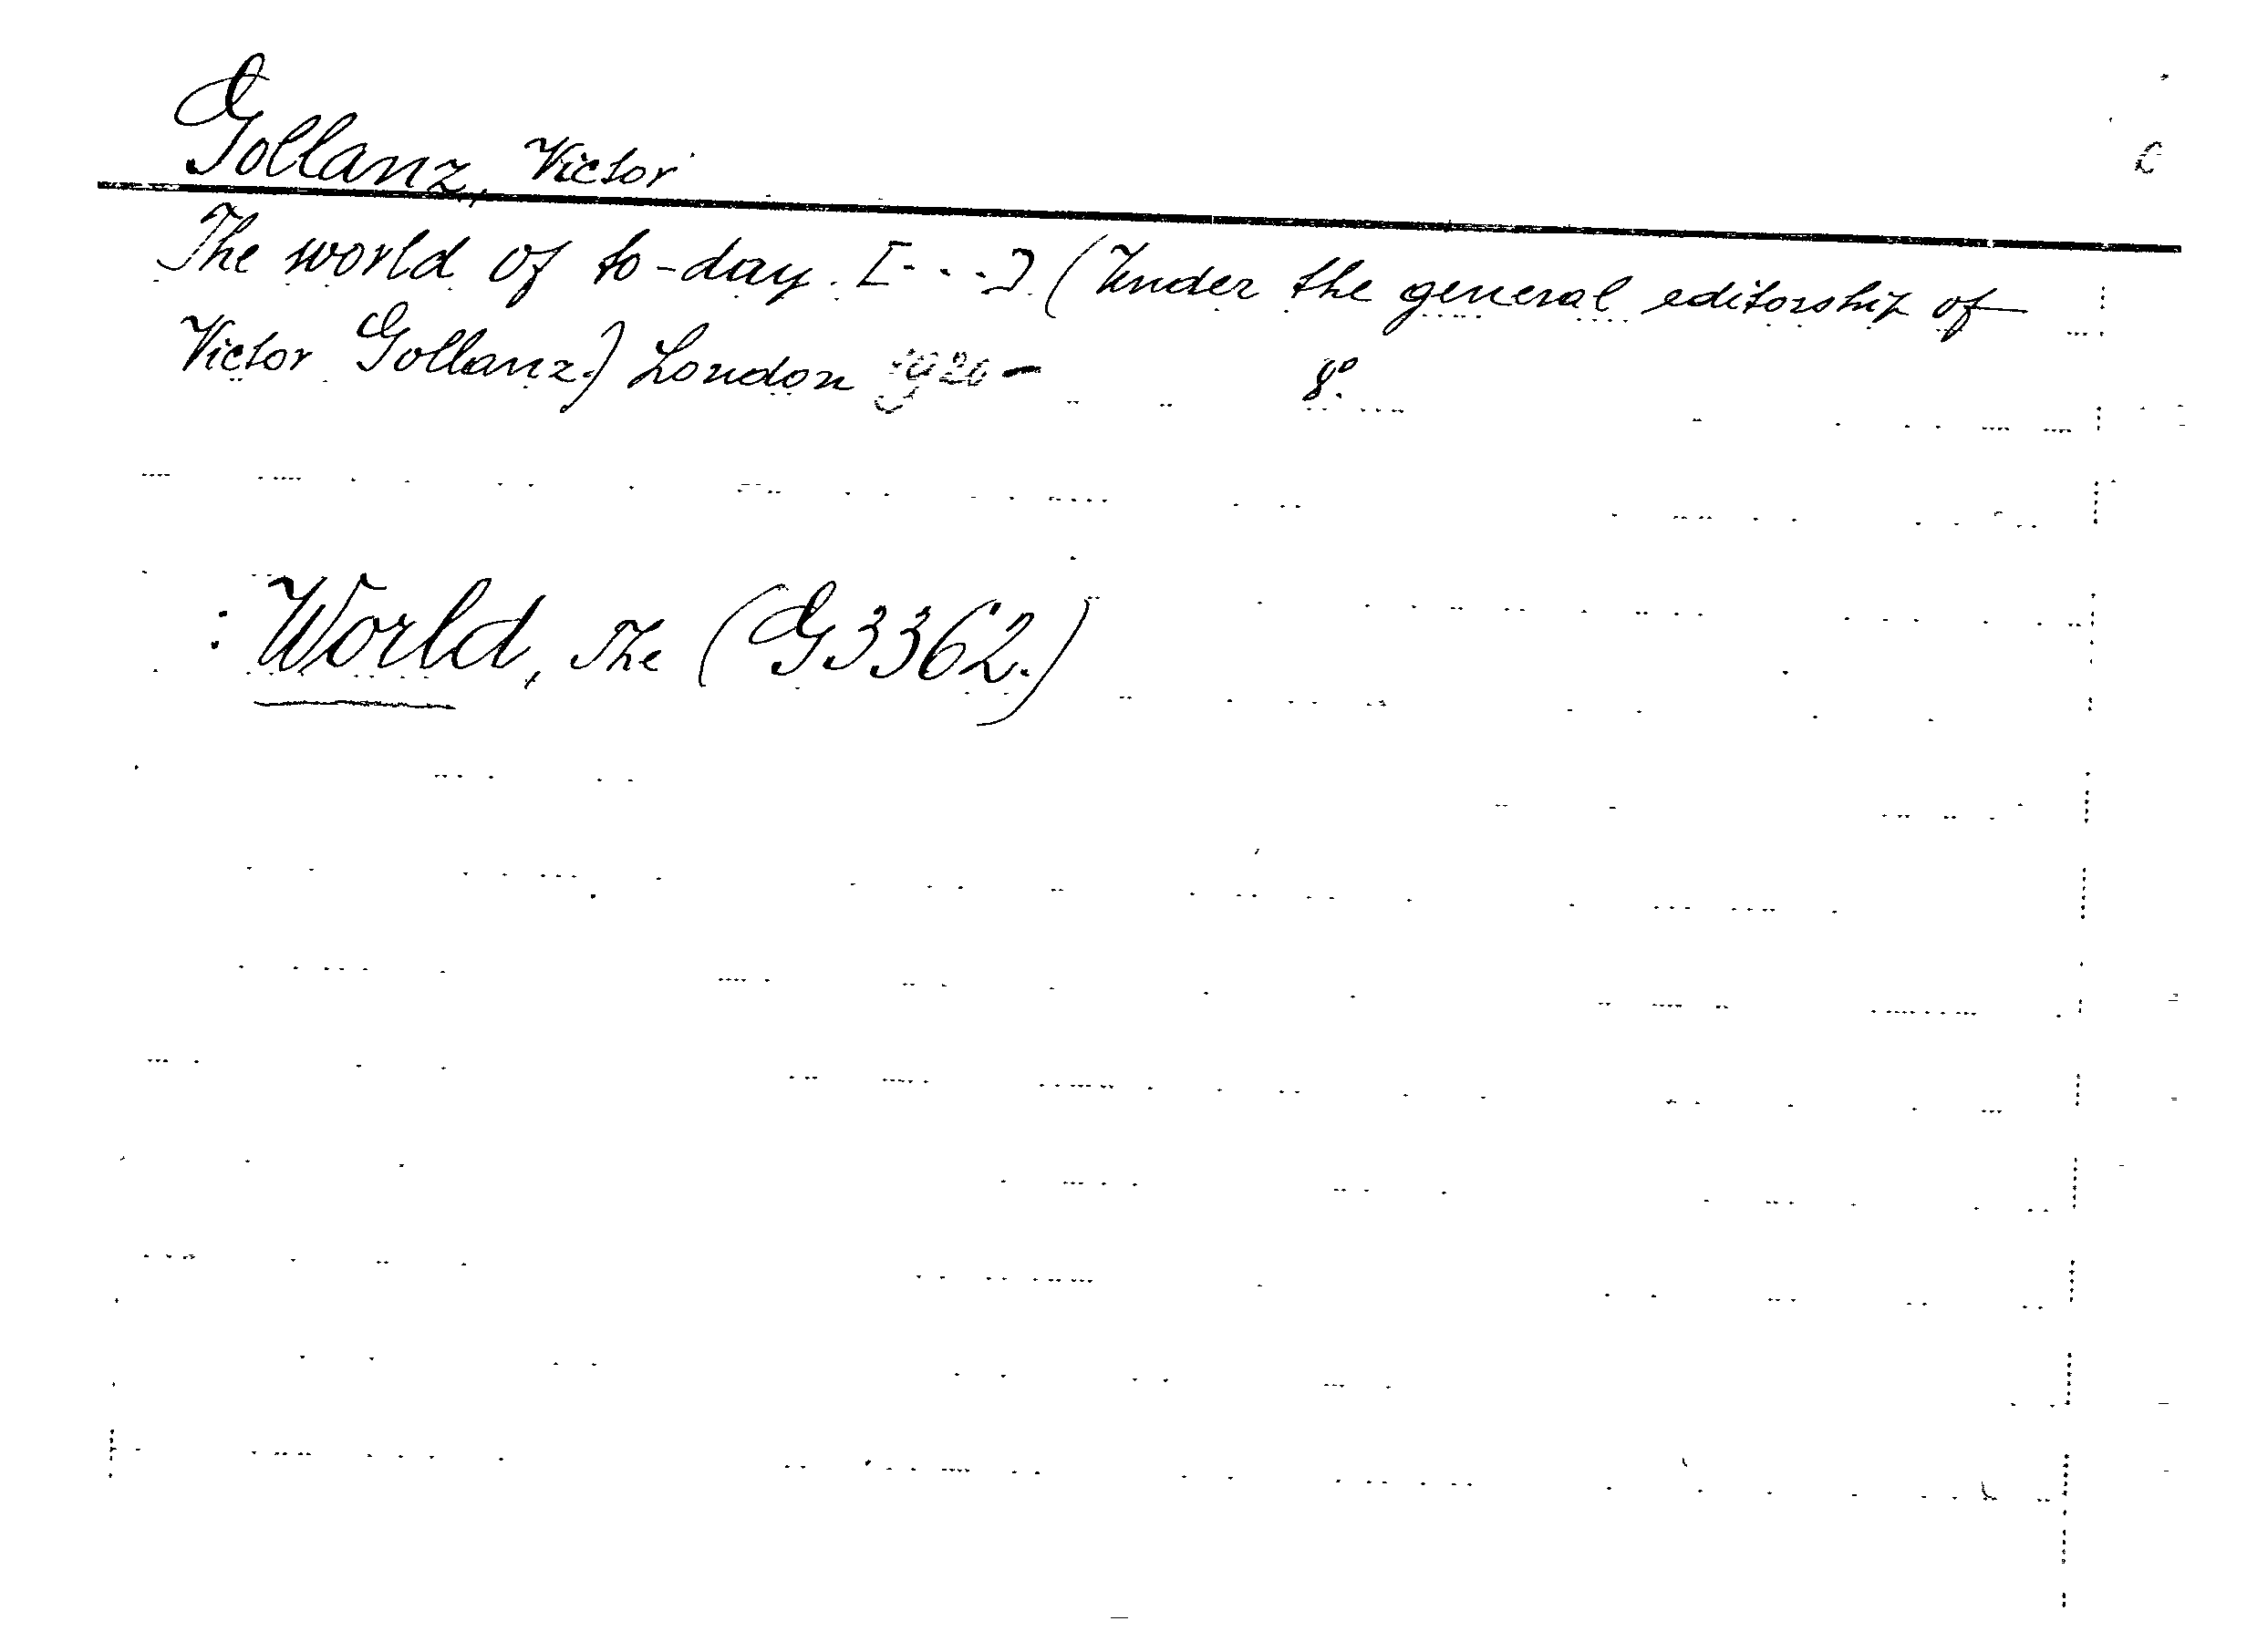 Gollanz, Victor
C
The world of to-day. [---] (Under the general editorship of
Victor Gollanz.) London 1920- 8º.
: World, The (G3362.)